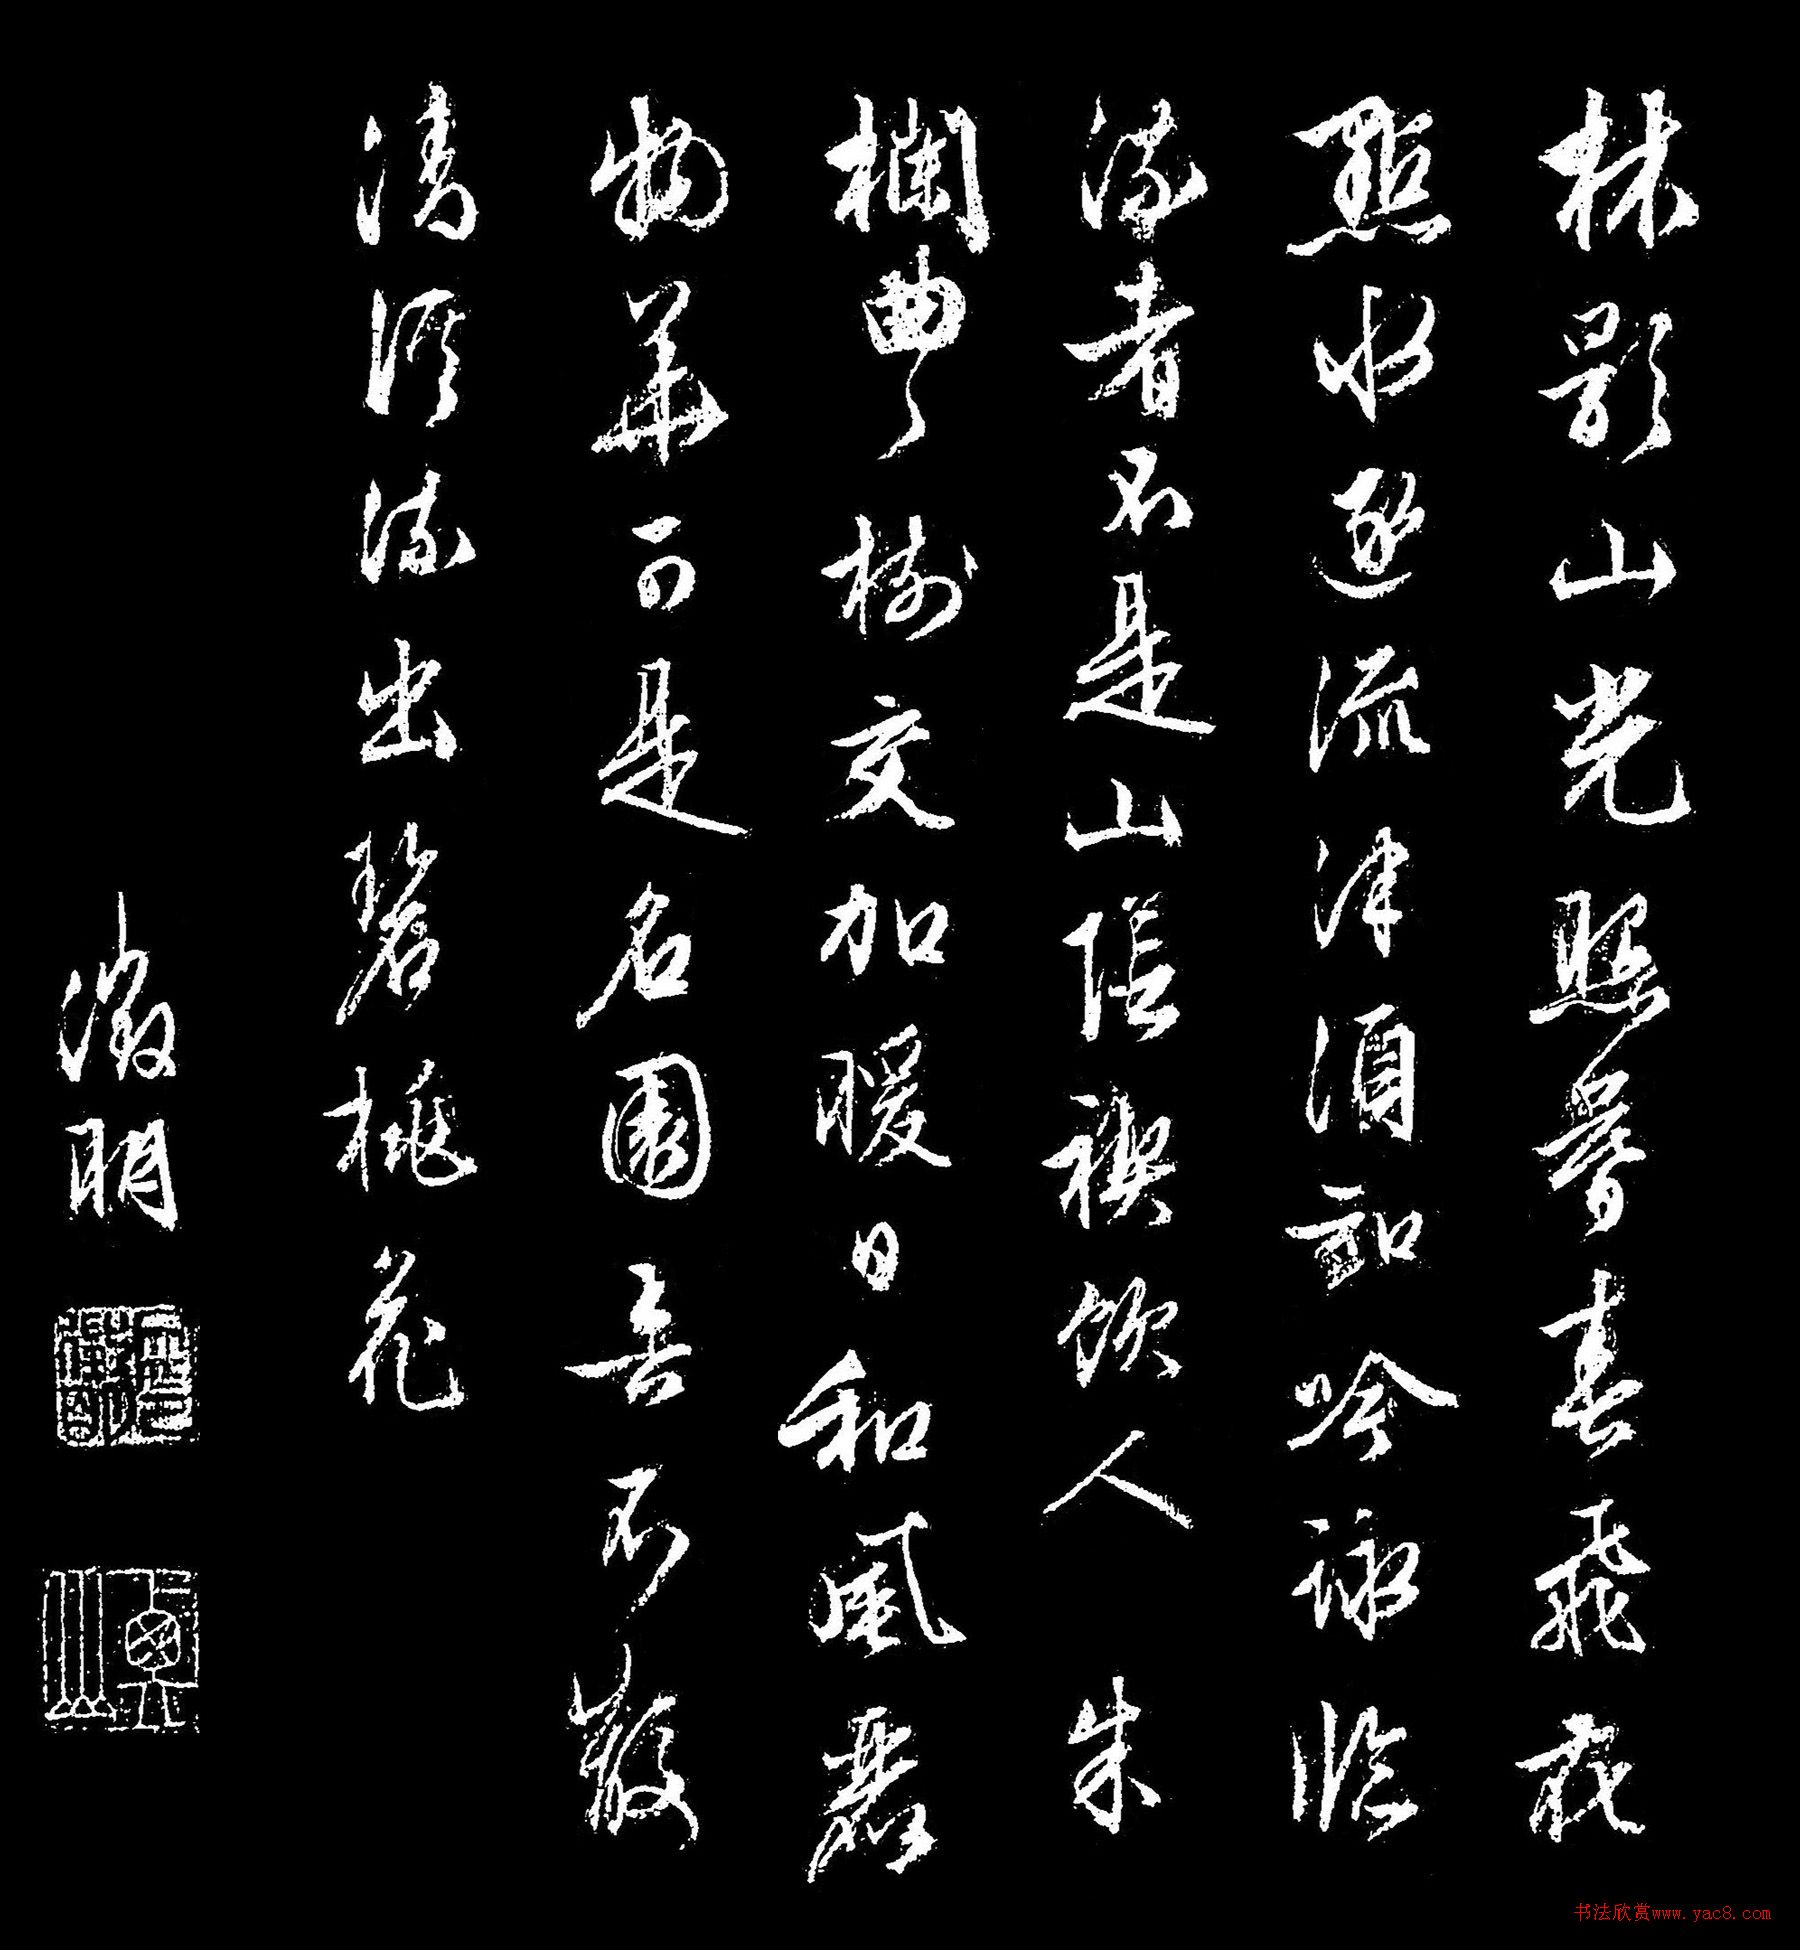 林影山光照暮春飛花
點水逐流津須知吟詠臨
流者不是山陰禊飲人 朱
欄曲〻樹交加暖日和風麗
物華可是名園春不散
清溪流出碧桃花
徵明
书法欣赏www.yac8.com